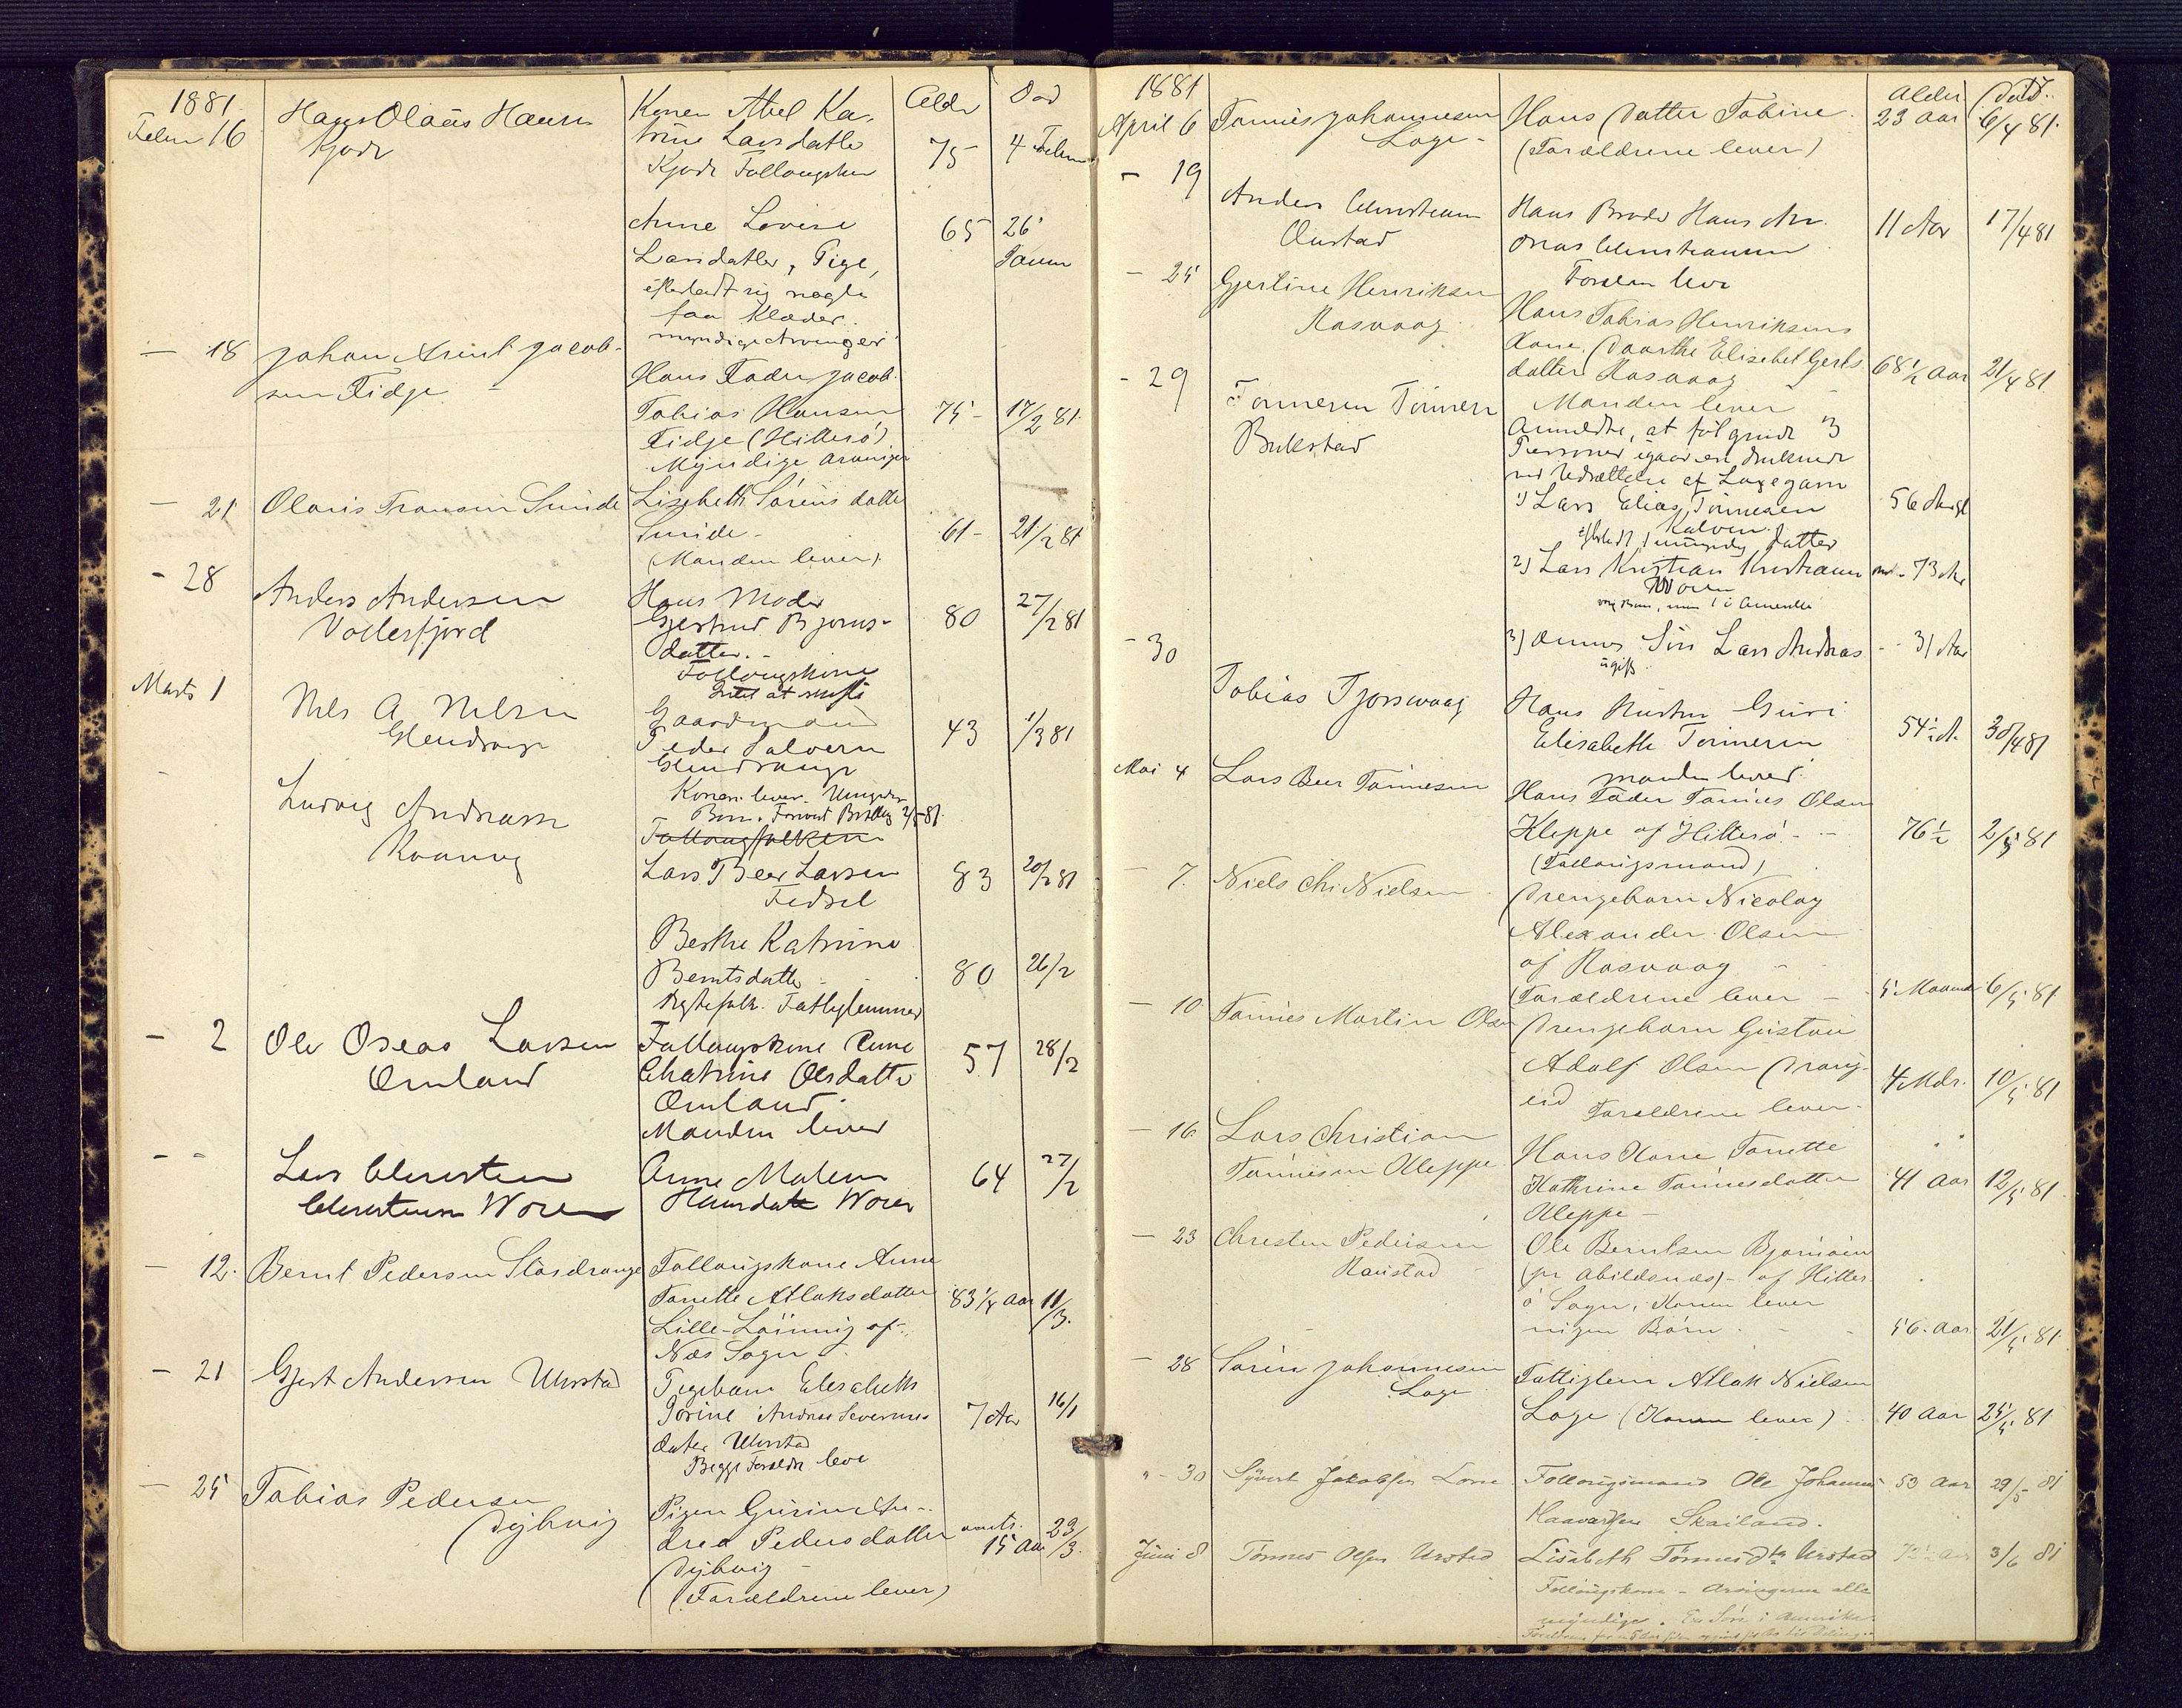 1881
Alder
Død
Februar 16 Hans Olaus Hansen
Kjøde
Konen Abel Ka-
trine Larsdatter
Kjøde Follougskone
75
4 Februar
Anne Lovise
Larsdatter, Pige,
efterladt sig nogle
faa Klæder.
myndige Arvinger
65
26
Januar
— 18 Johan Arent Jacob-
sen Fidje
Hans Fader Jacob
Tobias Hansen
Fidje (Hitterø)
Myndige Arvinger
75 -
17/2 81
— 21 Olaus Tronsen Sunde
Lisebeth Sørens datter
Sunde -
(Manden lever)
61 -
21/2 81
- 28 Anders Andersen
Vollesfjord
Hans Moder
Gjertrud Bjørns-
datter. -
Follougskone
Intet at skifte
80
27/2 81
Marts 1
Nils A Nilsen
Glendrange
Gaardmand
Peder Salvesen
Glendrange
Konen lever. Umyndige
Børn.
43
1/3 81
Ludvig Andreasen
Follougfolkene
Lars Beer Larsen
Fedsel
83
20/2 81
Berthe Katrine
Berntsdatter
Fattiglemmer
80
26/2
- 2 Ole Oseas Larsen
Omland
Follougskone Anne
Chatrine Olsdatter
Omland.
Manden lever
57
28/2
- - Lars Christen
Christensen Woren
Anne Malene
Hansdatter Woren
64
27/2
— 12. Bernt Pedersen Stordrange
Follougskone Anne
Tonette Atlaksdatter
Lille-Lønning af
Næs Sogn
83 1/4 Aar
11/3.
— 21 Gjert Andersen Urstad
Pigebarn Elisabeth
Torine Andreas Severines
datter Urstad
Begge Forældre leve
7 Aar
16/1
— 25 Tobias Pedersen
Dybvig
Pigen Gurine An-
drea Pedersdatter
Dybvig
(Forældrene lever)
15 Aar
23/3.
1881
Alder
Død.
April 6 Tønnes Johannesen
Loge -
Hans Datter Tobine
(Forældrene lever)
23 Aar
6/4 81.
- 19
Anders Christensen
Ørstad
Hans Broder Hans An-
dreas Christensen
Forældrene leve
11 Aar
17/4 81
— 25 Gjertine Henriksen
Rasvaag
Hans Tobias Henriksens
Kone Daarthe Elisebet Gerts-
datter Rasvaag
Manden lever
68 1/2 Aar
21/4 81
- 29
Tønnesen Tønnesen
Bukstad
Anmeldte, at følgende 3
Personer igaar ere druknede
ved Udsættelse af Laxegarn
1) Lars Elias Tønnesen
Kalven
efterladt 1 umyndig datter
56 Aar gl
2) Lars Kristian Kristiansen
Woren
73 Aar
3) dennes Søn Lars Andreas
ugift
- - 31 Aar
- 30
Tobias Tjørsvaag
Hans Hustru Guri
Elisabeth Tønnesen
manden lever.
54 1/2 A.
30/4 81
Mai 4 Lars Beer Tønnesen
Hans Fader Tønnes Olsen
Kleppe af Hitterø -
(Follougsmand)
76 1/2
2/5 81
— 7. Niels Chr Nielsen
Drengebarn Nicolay
Alexander Olsen
af Rasvaag
(Forældrene lever -
5 Maaneder
6/5 81
— 10 Tønnes Martin Olsen
Drengebarn Gustav
Adolf Olsen Drang-
eid Forældrene lever.
4 Mdr.
10/5 81
— 16 Lars Christian
Tønnesen Kleppe
Hans Kone Tonette
Kathrine Tønnesdatter
Kleppe -
41 Aar
12/5 81.
— 23 Christen Pedersen
Raustad
Ole Berntsen Bjørnøen
(pr Abildsnæs) - af Hitter-
ø Sogn. Konen lever
ingen Børn.
56. Aar
21/5 81.
— 28 Søren Johannesen
Loge
Fattiglem Atlak Nielsen
Loge (Konen lever)
40 Aar
25/5 81
" - 30 Syvert Jakobsen Lone
Follougsmand Ole Johannes
Haavardsen Skailand.
53 Aar
29/5 81
Juni 8 Tønnes Olsen Urstad
Lisabeth Tønnesdtr Urstad
Follougskone - Arvingerne alle
myndige. En Søn i Amerika.
72 1/2 Aar
3/6 81